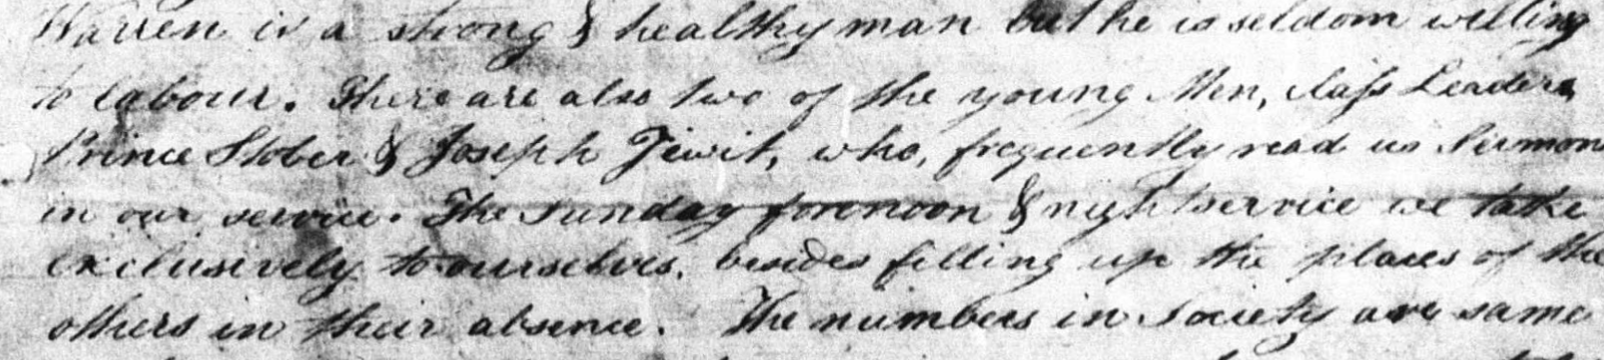 Warren is a strong & healthy man but he is seldom willing
to labour. There are also two of the young Men, class Leaders,
Prince Stober & Joseph Jewit, who, frequently read us Sermons
in our service. The sunday forenoon & night service we take
exclusively to ourselves, besides filling up the places of the
others in their absence. The numbers in Society are same